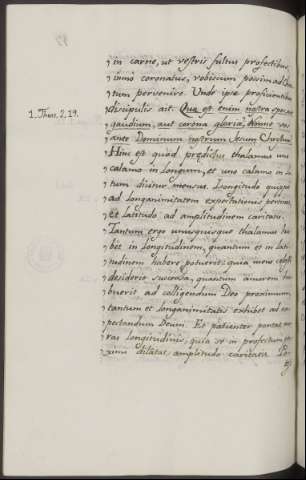 in carne, ut vestris fultus profectibus,
immo coronatus, vobiscum possim ad Chris
tum pervenire. Unde ipse proficientibus
discipulis ait. Qua est enim nostra spes, aut
1. Thess. 2. 19.
gaudium, aut corona gloria? Nonne vos
ante Dominum nostrum Jesum Christum
Hinc est quod predictus thalamus uno
calamo in longum, et uno calamo in la
tum dicitur mensus. Longitudo quippe
ad longanimitatem expectationis pertinet,
et latitudo ad amplitudinem caritatis.
Tantum ergo unusquisque thalamus ha
bet in longitudinem, quantum et in lati
tudinem habere potuerit: quia mens
desiderio succensa, quantum amorem
buerit ad colligendum Deo proximum,
tantum et longanimitatis exhibet ad ex
pectandum Deum. Et patienter portat
ras longitudinis, quia se in profectum
ximi dilatat amplitudo caritatis.